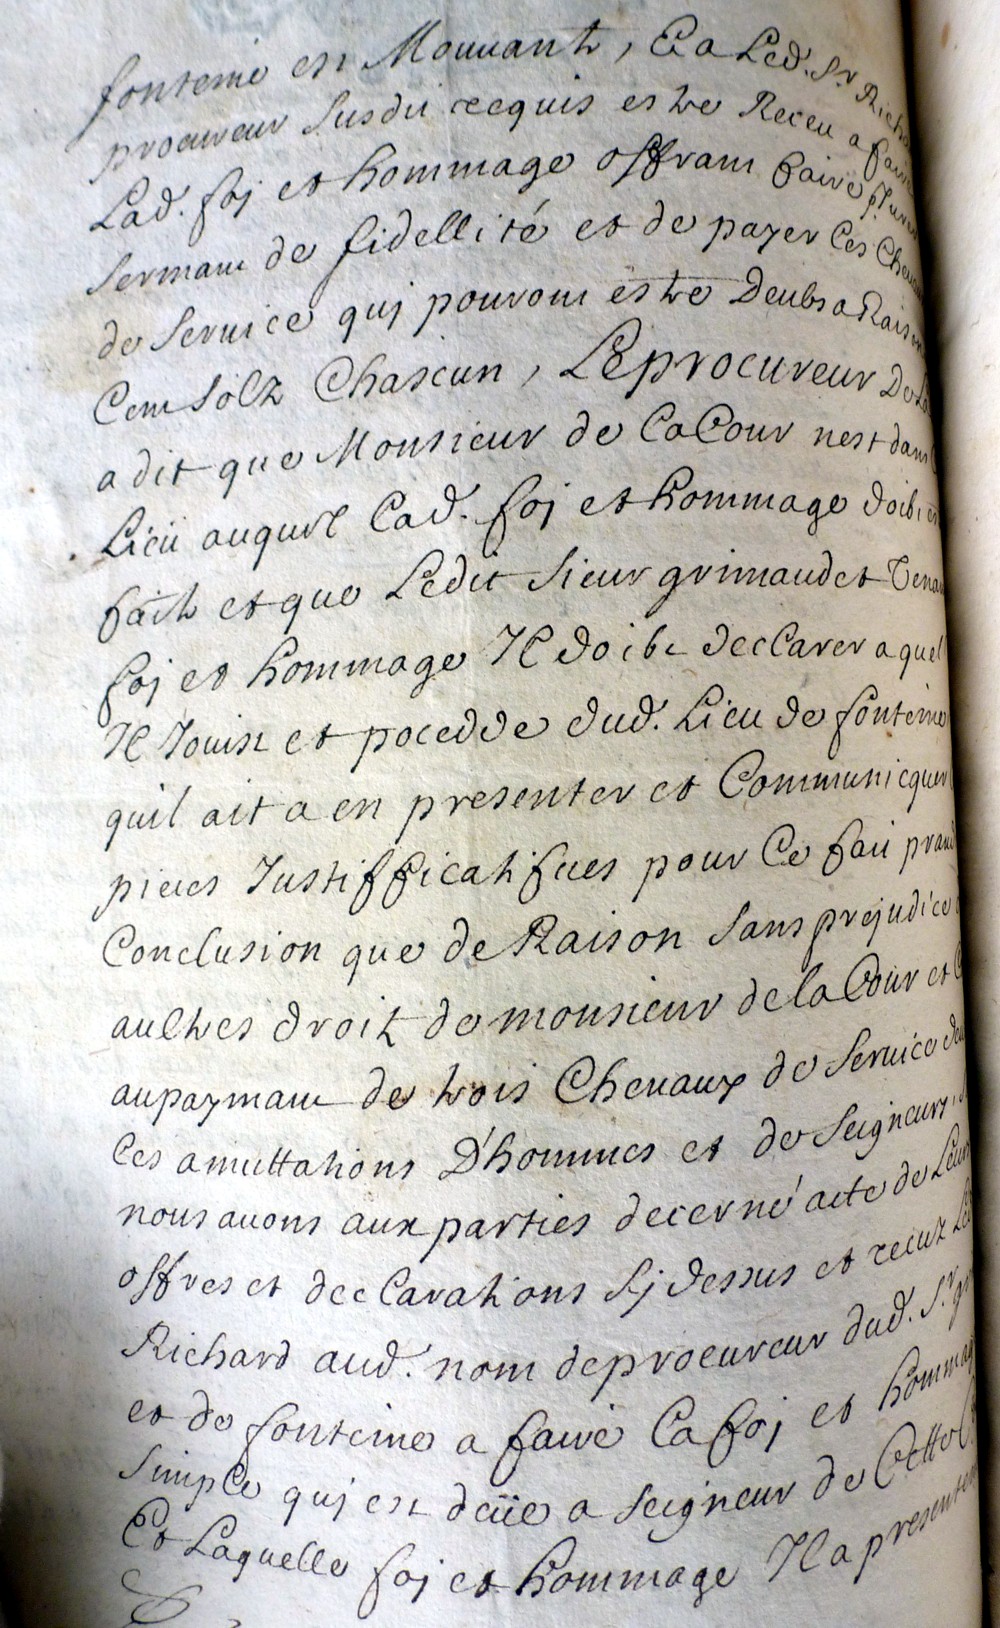 fonteine est Mouuant, Et a Led. Sr Richa
procureur Susdit recquis estre Receu a faire
Lad. foj et hommage offrant faire p. Jurer
Sermant de fidellité et de payer les Cheuau
de Seruice quj pouront estre Deubs a Raison
Cent Solz Chascun, Le procureur De La
a dit que Monsieur de La Cour nest dans
Lieü auquel Lad. foj et hommage doibt est
fait et que Ledit Sieur grimaudet Tenan
foj et hommage Il doibt declarer a quel
Il Jouist et pocedde dud. Lieu de fonteine
quil ait a en presenter et Communicquer
pieces Justifficatifues pour Ce fait prand
Conclusion que de Raison Sans prejudice
aultres droit de monsieur de la Cour et
au paymant de trois Cheuaux de Seruice deu
Les amuttations D'hommes et de Seigneurs,
nous auons aux parties decerné acte de Leurs
offres et declarations Sj dessus et receut Led
Richard aud. nom de procureur dud. Sr. gri
et de fonteine a faire La foj et hommage
Simple quj est deüe a Seigneur de Cette
Et Laquelle foj et hommage Il a presente